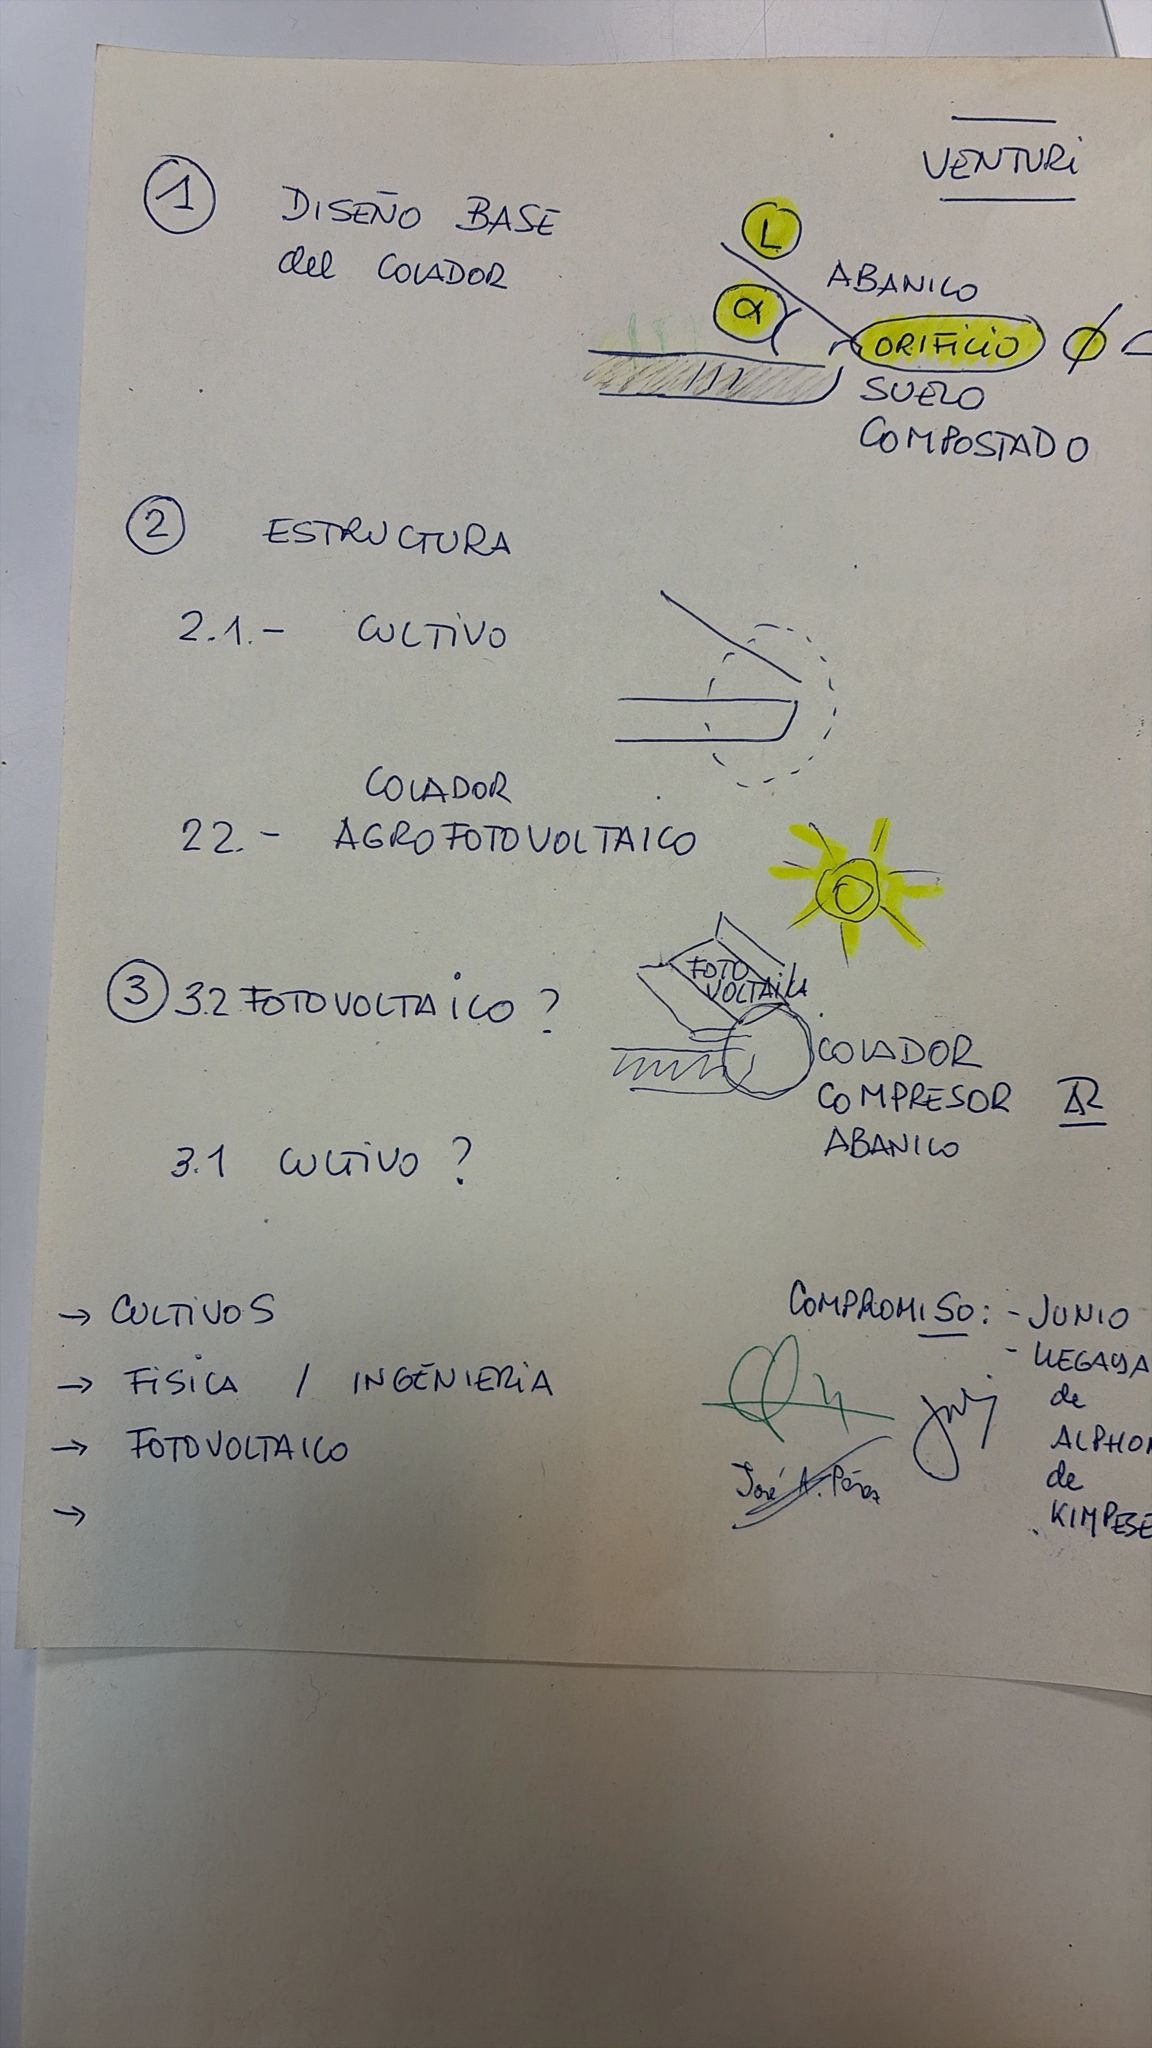 VENTURi
1 DISEÑO BASE
del COLADOR
L
α
ABANICO
ORIFICIO ϕ
SUELO
COMPOSTADO
2 ESTRUCTURA
2.1.- CULTIVO
COLADOR
22.- AGROFOTOVOLTAICO
FOTO
VOLTAICA
3 3.2 FOTOVOLTAICO?
COLADOR
COMPRESOR
ABANICO
3.1 CULTIVO?
→ CULTIVOS
→ FISICA / INGENIERIA
→ FOTOVOLTAICO
→
COMPROMISO: - JUNIO
- LLEGADA
de
ALPHON
de
KIMPESE
José A. Pérez